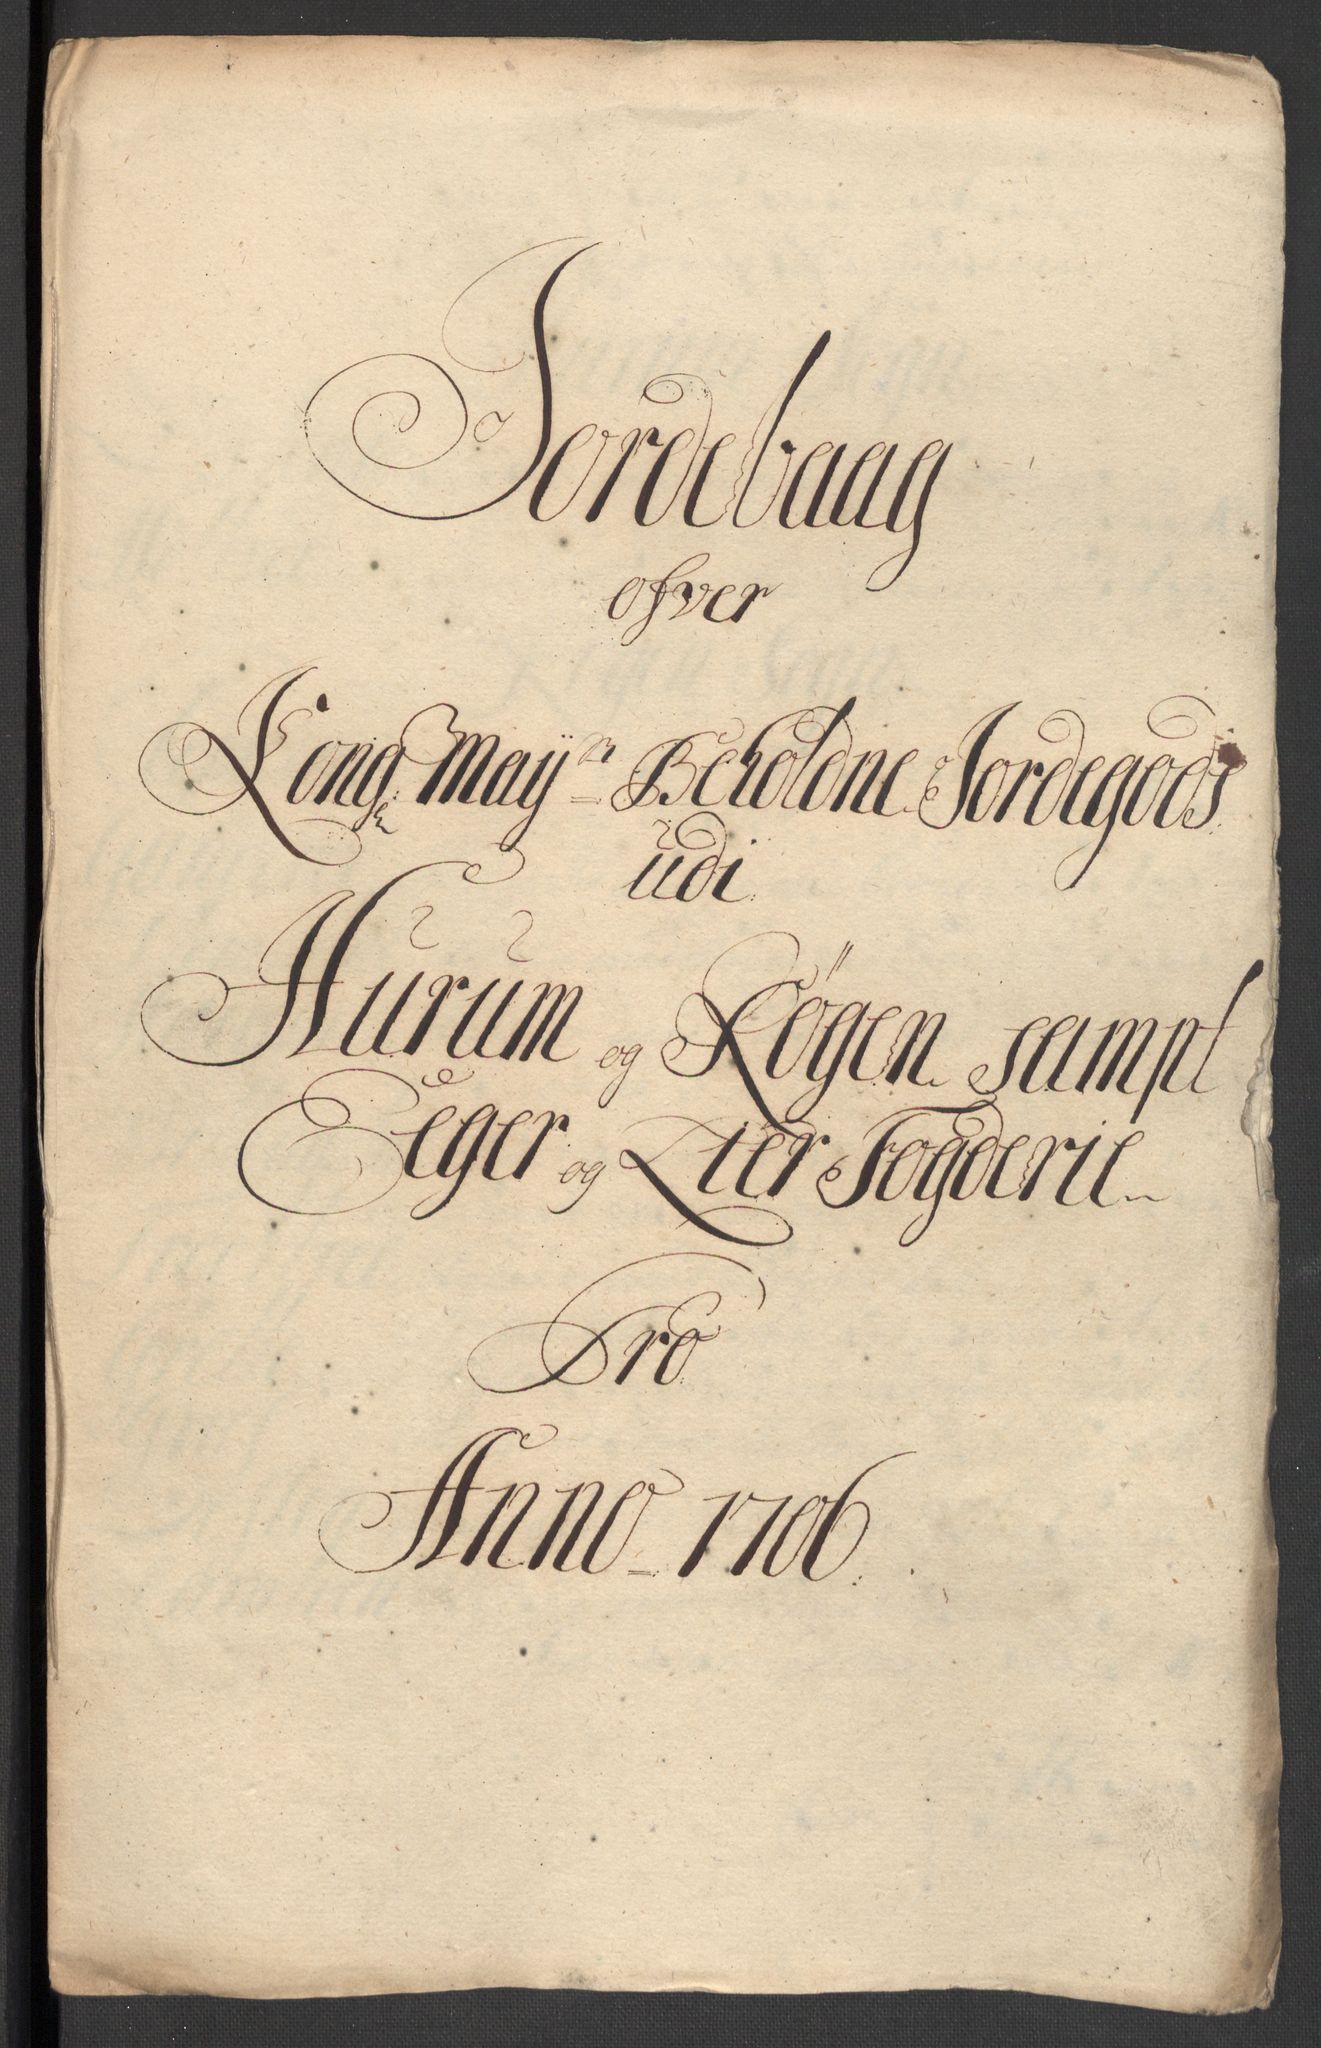 Jordebaag
ofver
Kong: Mayts Beholdne Jordegods
udi
Hurum og Røgen sampt
Eger og Lier Fogderie
Pro
Anno 1706